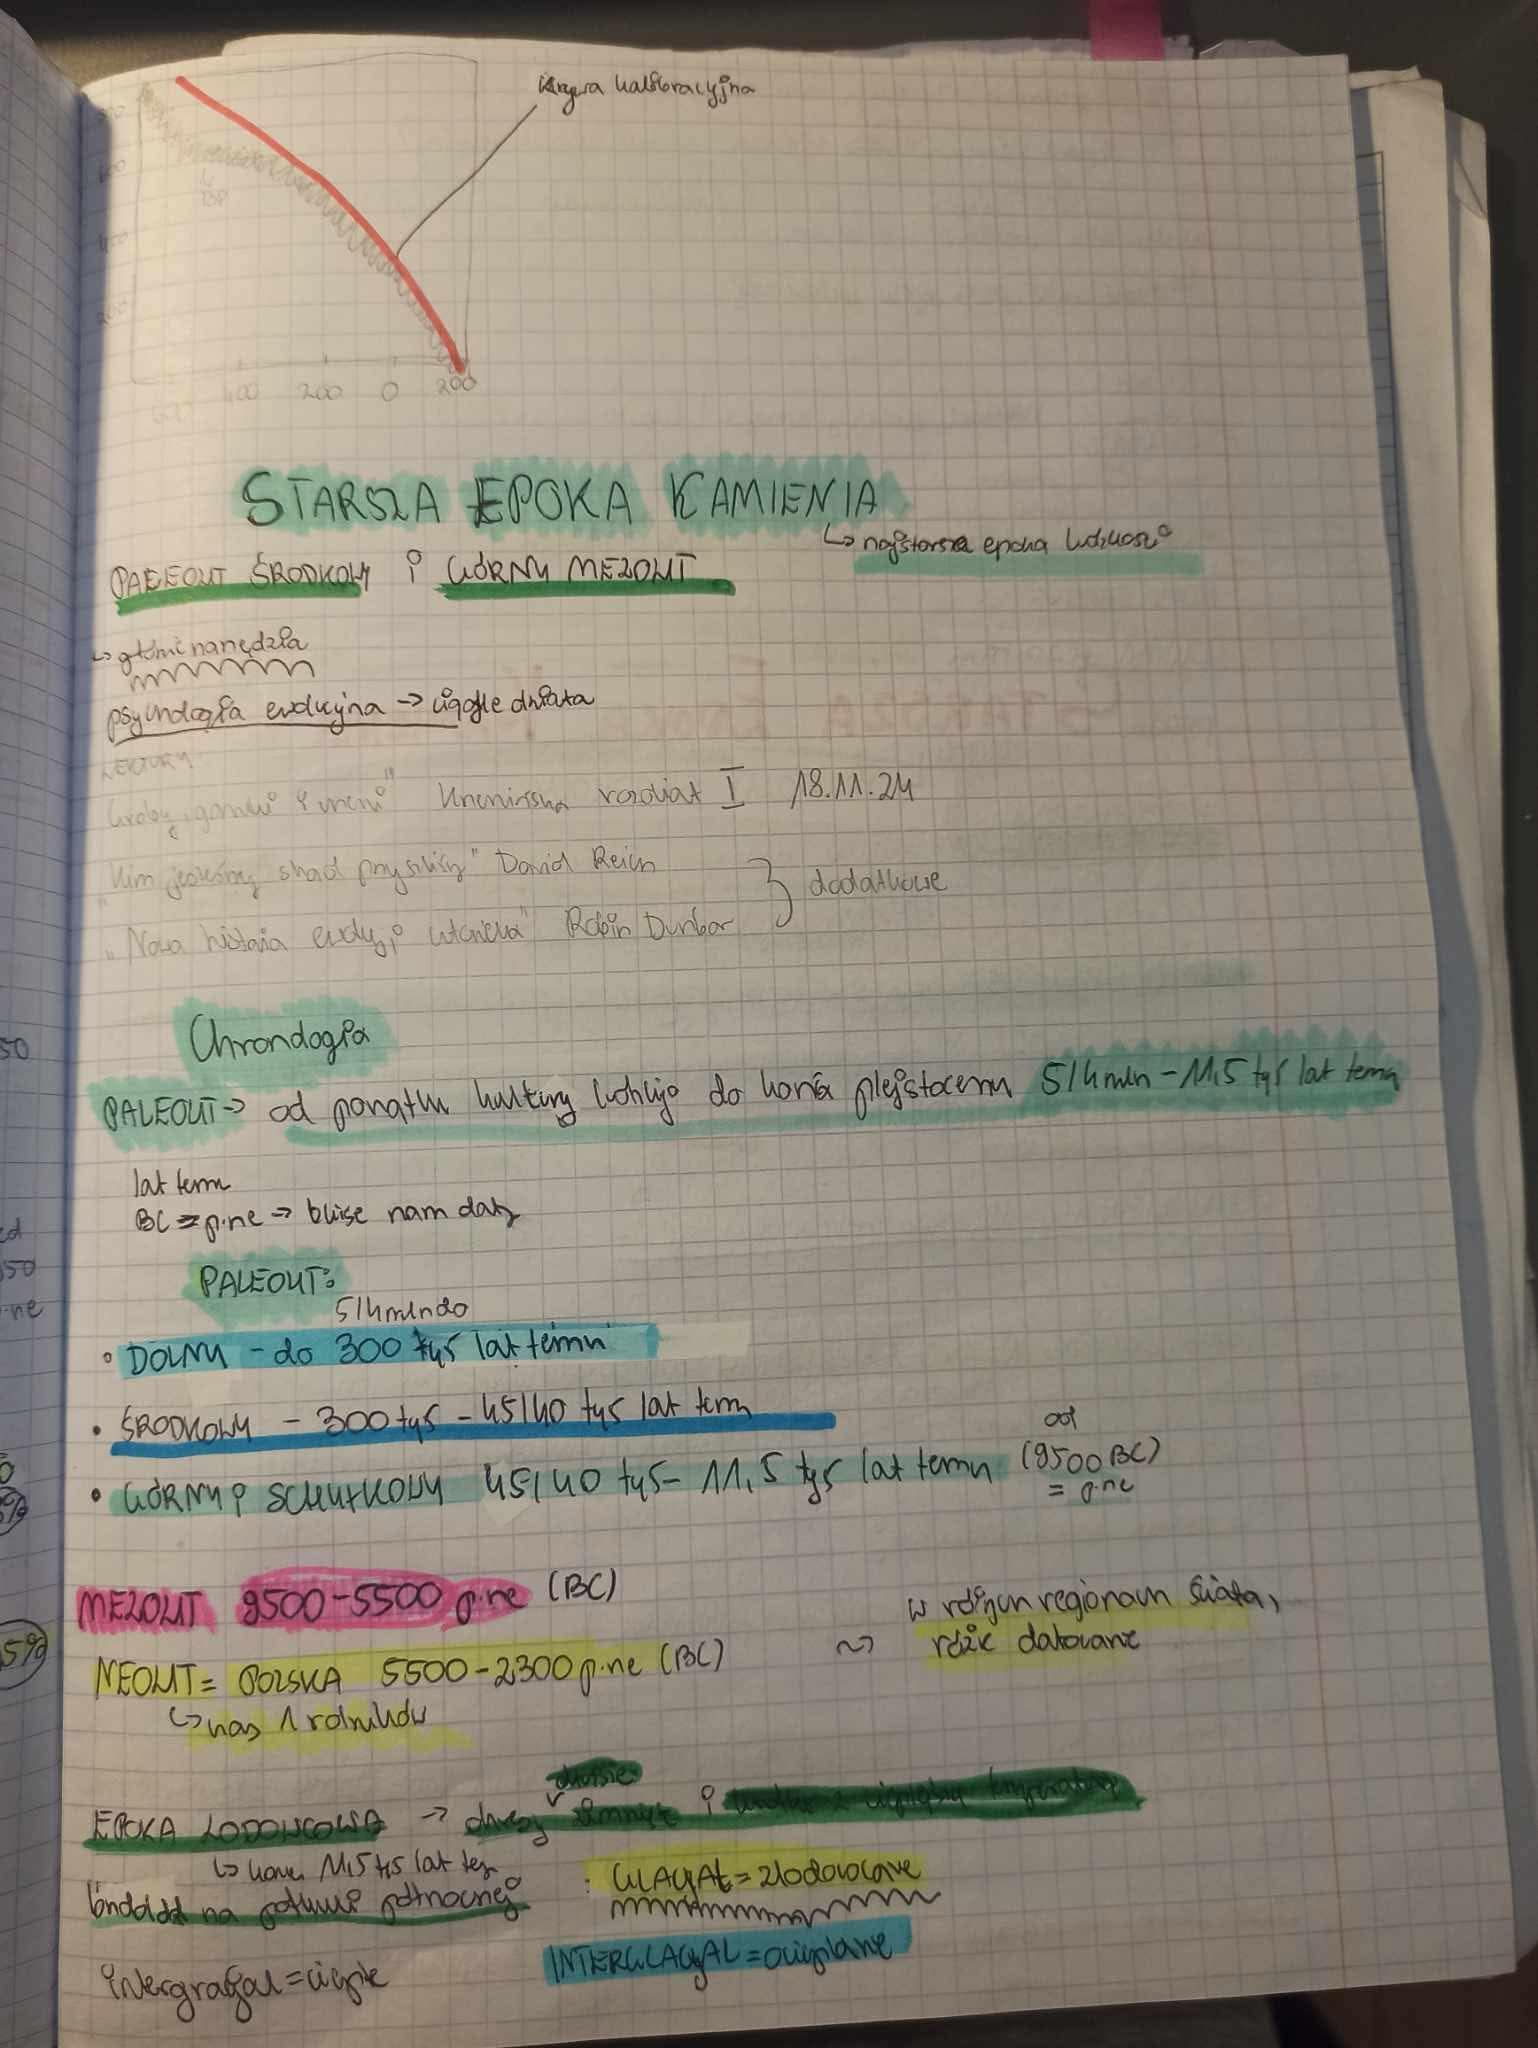 krzywa kalibracyjna
400 200 0 200
STARSZA EPOKA KAMIENIA
↳ najstarsza epoka ludzkości
PALEOLIT ŚRODKOWY i GÓRNY MEZOLIT
narzędzia
psychologia ewolucyjna → ciągle działa
LEKTURY
I 18.11.24
"Kim jesteśmy skąd przyszliśmy" David Reich
dodatkowe
"Nowa historia ewolucji człowieka" Robin Dunbar
Chronologia
PALEOLIT → od początku kultury ludzkiej do końca plejstocenu 5/4 mln - 11,5 tyś lat temu
lat temu
BC = p.ne → bliższe nam daty
PALEOLIT:
5/4 mln do
• DOLNY - do 300 tyś lat temu
• ŚRODKOWY - 300 tyś - 45/40 tyś lat temu
od
• GÓRNY i SCHYŁKOWY 45/40 tyś - 11,5 tyś lat temu (9500 BC)
= p.ne
MEZOLIT 9500-5500 p.ne (BC)
w różnych regionach świata,
NEOLIT = POLSKA 5500-2300 p.ne (BC) ~> różnie datowane
↳ czas 1 rolników
EPOKA LODOWCOWA → okresy zimniejsze i
↳ koniec 11,5 tyś lat temu
na półkuli północnej
: GLACJAŁ = zlodowacenie
INTERGLACJAŁ = ocieplenie
intergracjał = ciepłe